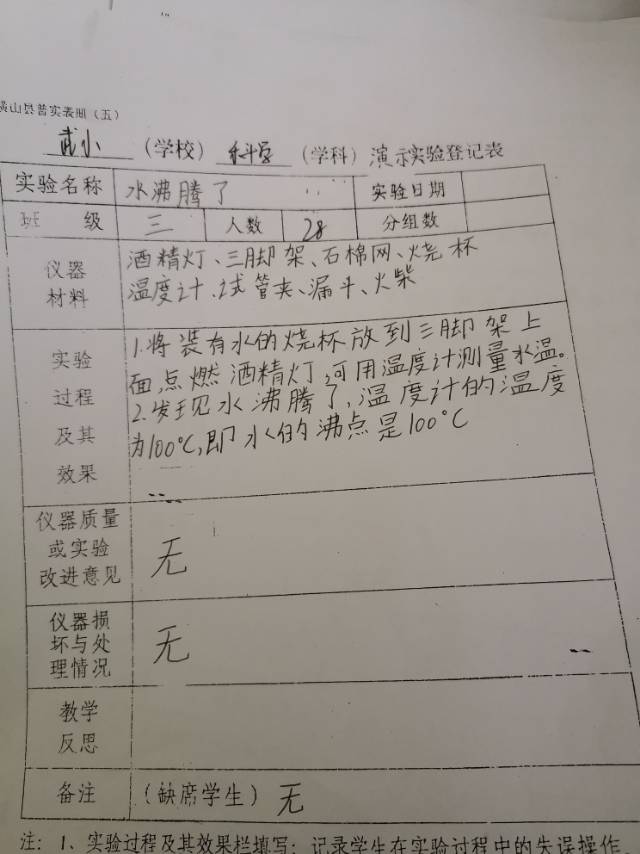 黄山县普实表册（五）
武小（学校）科学（学科）演示实验登记表
实验名称 水沸腾了 实验日期
班 级 三 人数 28 分组数
仪器材料 酒精灯、三脚架、石棉网、烧杯
温度计、试管夹、漏斗、火柴
实验过程及其效果 1.将装有水的烧杯放到三脚架上
面,点燃酒精灯,可用温度计测量水温。
2.发现水沸腾了,温度计的温度
为100℃,即水的沸点是100℃
仪器质量或实验改进意见 无
仪器损坏与处理情况 无
教学反思
备注 （缺席学生）无
注：1、实验过程及其效果栏填写：记录学生在实验过程中的失误操作、